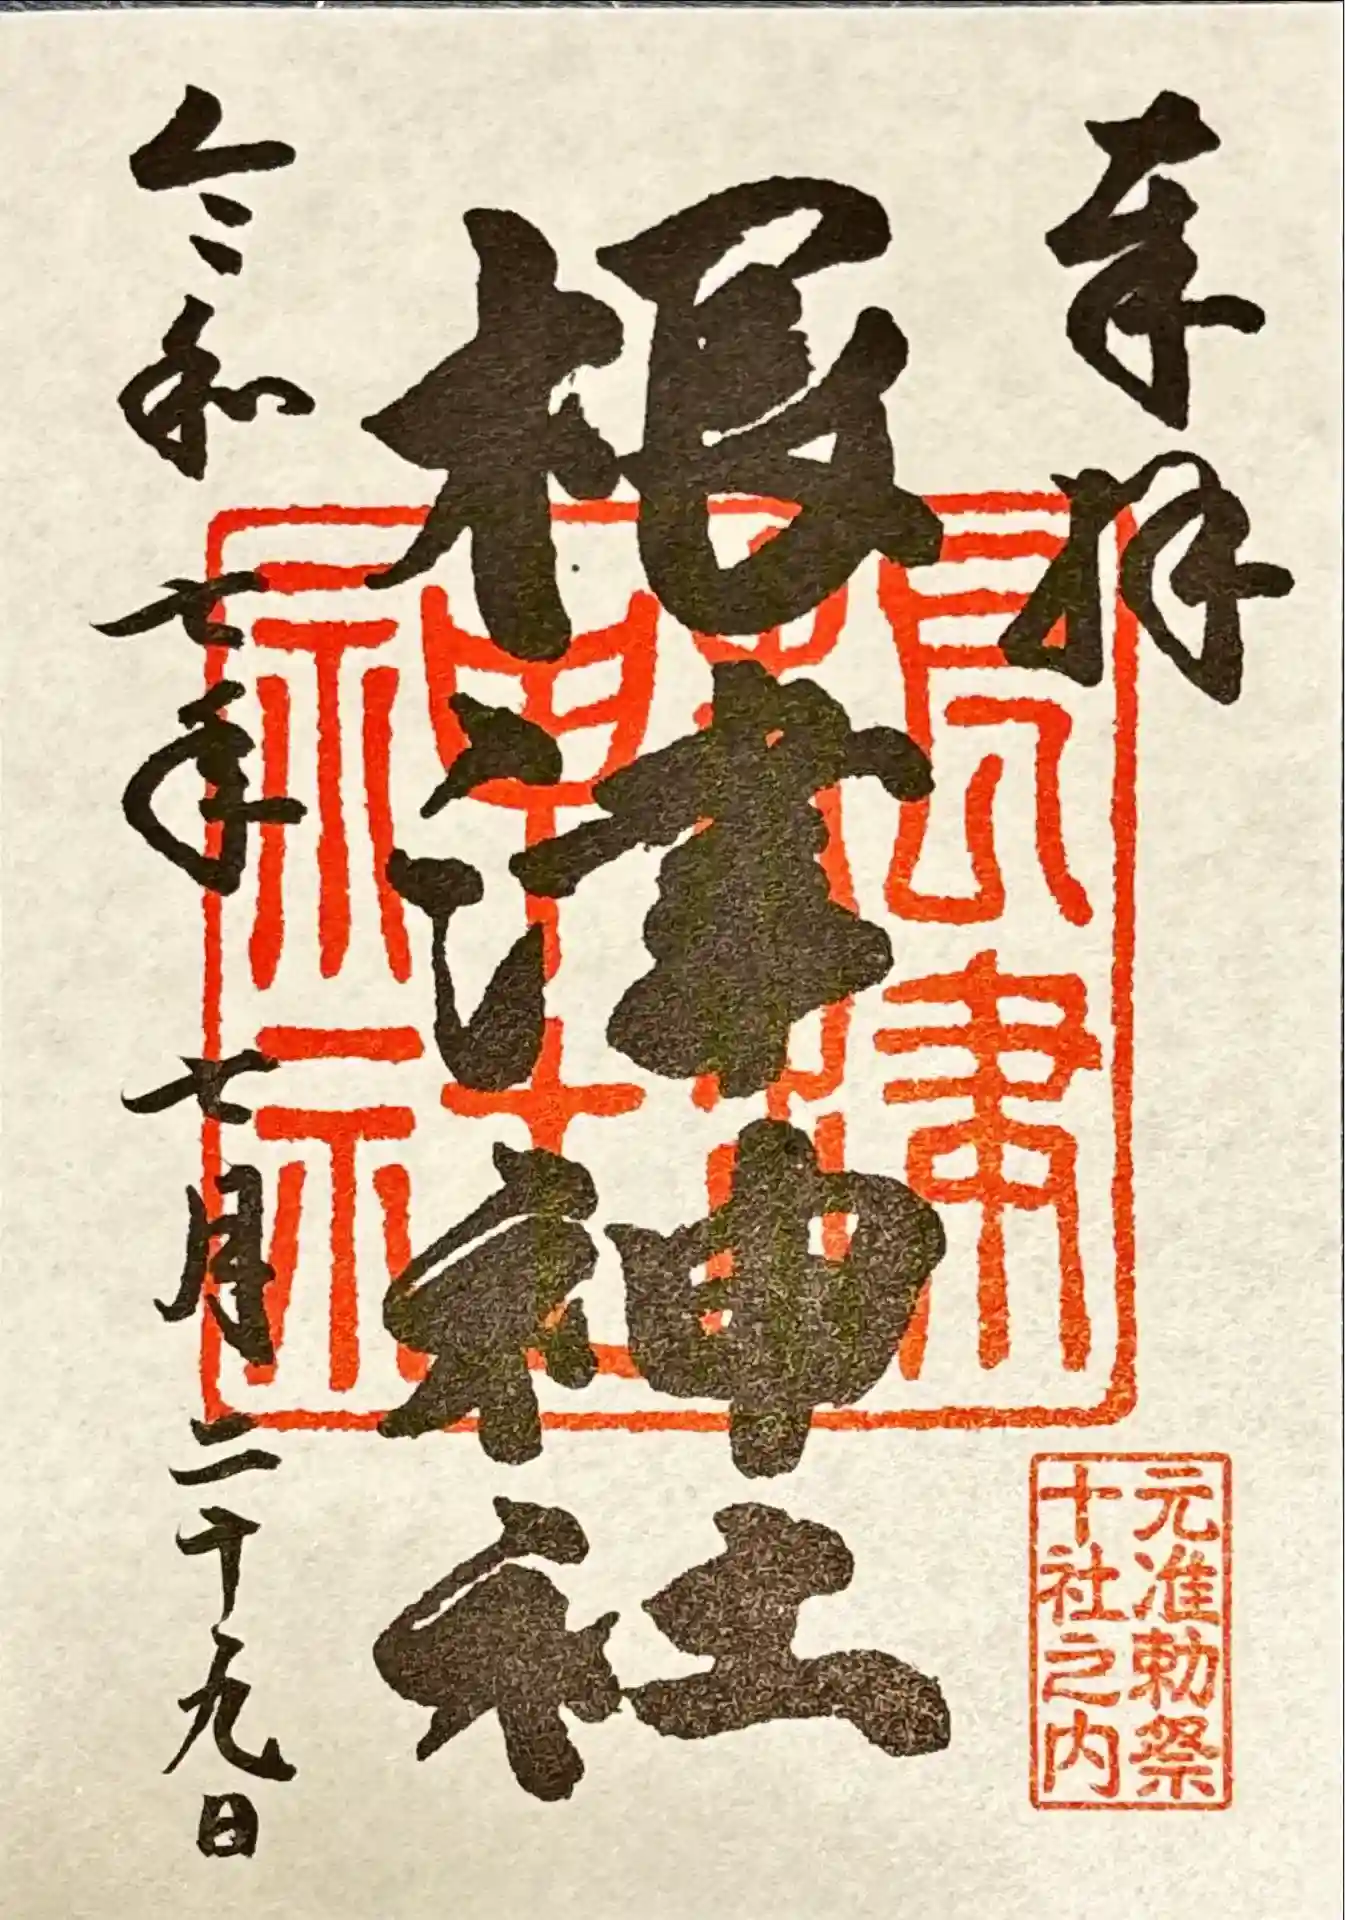 奉拝
元准勅祭
十社之内
根津神社
令和七年七月二十九日